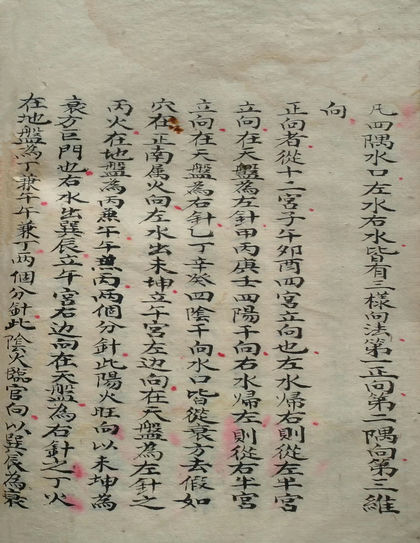 凡四隅水口左水右水皆有三樣向法第一正向第二隅向第三維
向
正向者從十二宮子午卯酉四宮立向也左水歸右則從左半宮
立向在天盤為左針甲丙庚壬四陽干向右水歸左則從右半宮
立向在天盤為右針乙丁辛癸四陰干向水口皆從衰方去假如
穴在正南属火向左水出未坤立午宮左边向在天盤為左針之
丙火在地盤為丙兼午午兼丙兩個分針此陽火旺向以未坤為
衰方巨門也右水出巽辰立午宮右边向在天盤為右針之丁火
在地盤為丁兼午午兼丁兩個分針此陰火臨官向以巽辰為衰